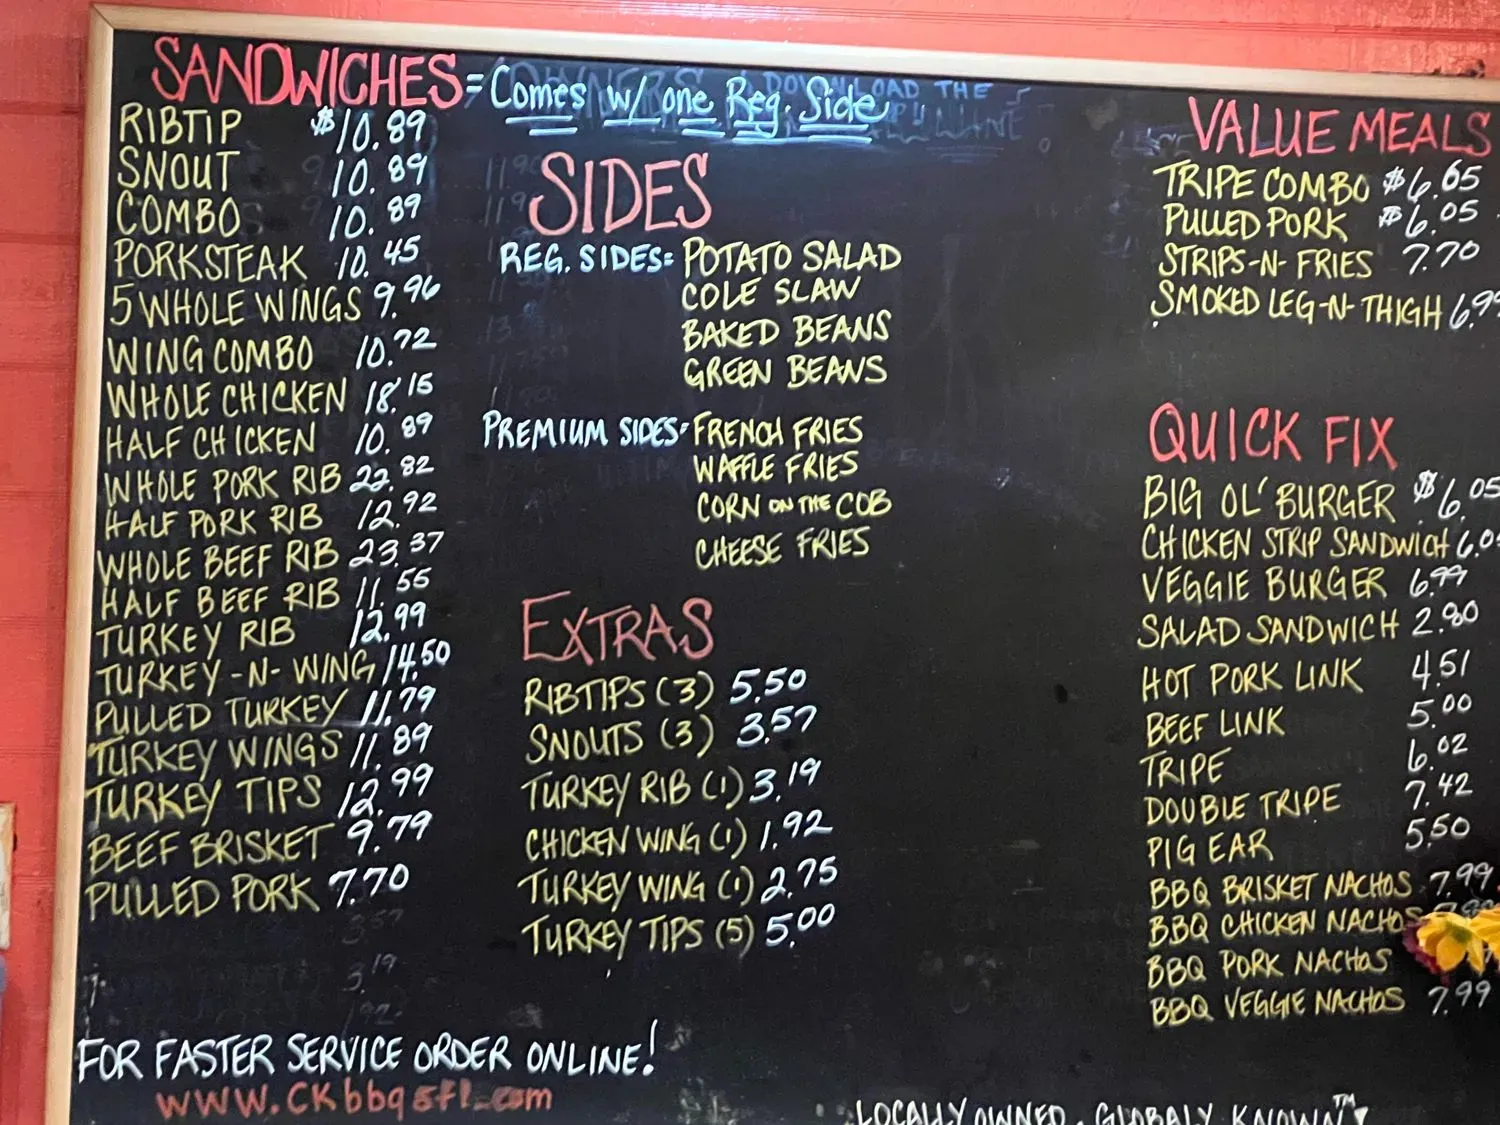 SANDWICHES = Comes w/ one Reg. Side
RIBTIP $10.89
SNOUT 10.89
COMBO 10.89
PORKSTEAK 10.45
5 WHOLE WINGS 9.96
WING COMBO 10.72
WHOLE CHICKEN 18.15
HALF CHICKEN 10.89
WHOLE PORK RIB 22.82
HALF PORK RIB 12.92
WHOLE BEEF RIB 23.37
HALF BEEF RIB 11.55
TURKEY RIB 12.99
TURKEY-N-WING 14.50
PULLED TURKEY 11.79
TURKEY WINGS 11.89
TURKEY TIPS 12.99
BEEF BRISKET 9.79
PULLED PORK 7.70
FOR FASTER SERVICE ORDER ONLINE!
www.CKbbqstl.com
SIDES
REG. SIDES= POTATO SALAD
COLE SLAW
BAKED BEANS
GREEN BEANS
PREMIUM SIDES= FRENCH FRIES
WAFFLE FRIES
CORN ON THE COB
CHEESE FRIES
EXTRAS
RIBTIPS (3) 5.50
SNOUTS (3) 3.57
TURKEY RIB (1) 3.19
CHICKEN WING (1) 1.92
TURKEY WING (1) 2.75
TURKEY TIPS (5) 5.00
VALUE MEALS
TRIPE COMBO $6.65
PULLED PORK $6.05
STRIPS-N-FRIES 7.70
SMOKED LEG-N-THIGH 6.99
QUICK FIX
BIG OL' BURGER $6.05
CHICKEN STRIP SANDWICH 6.0
VEGGIE BURGER 6.99
SALAD SANDWICH 2.80
HOT PORK LINK 4.51
BEEF LINK 5.00
TRIPE 6.02
DOUBLE TRIPE 7.42
PIG EAR 5.50
BBQ BRISKET NACHOS 7.99
BBQ CHICKEN NACHOS
BBQ PORK NACHOS
BBQ VEGGIE NACHOS 7.99
LOCALLY OWNED. GLOBALY KNOWN™